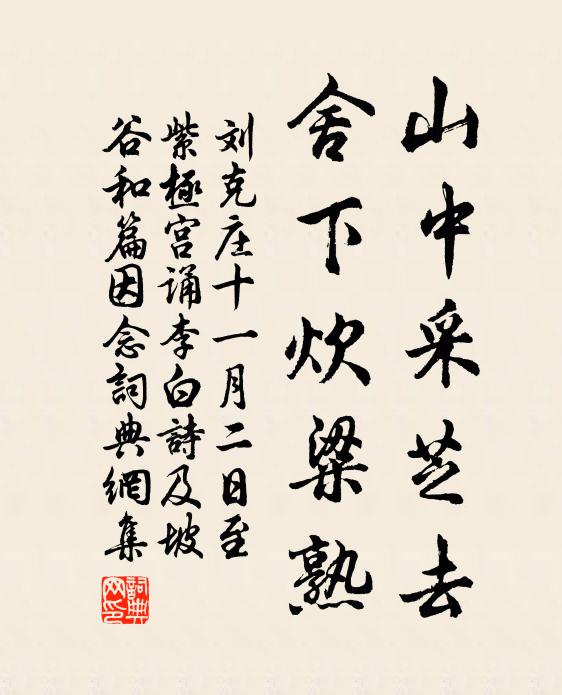 山中采芝去
舍下炊梁熟
刘克庄十一月二日至
紫極宫诵李白詩及坡
谷和篇因念詞典網集
詞典网印